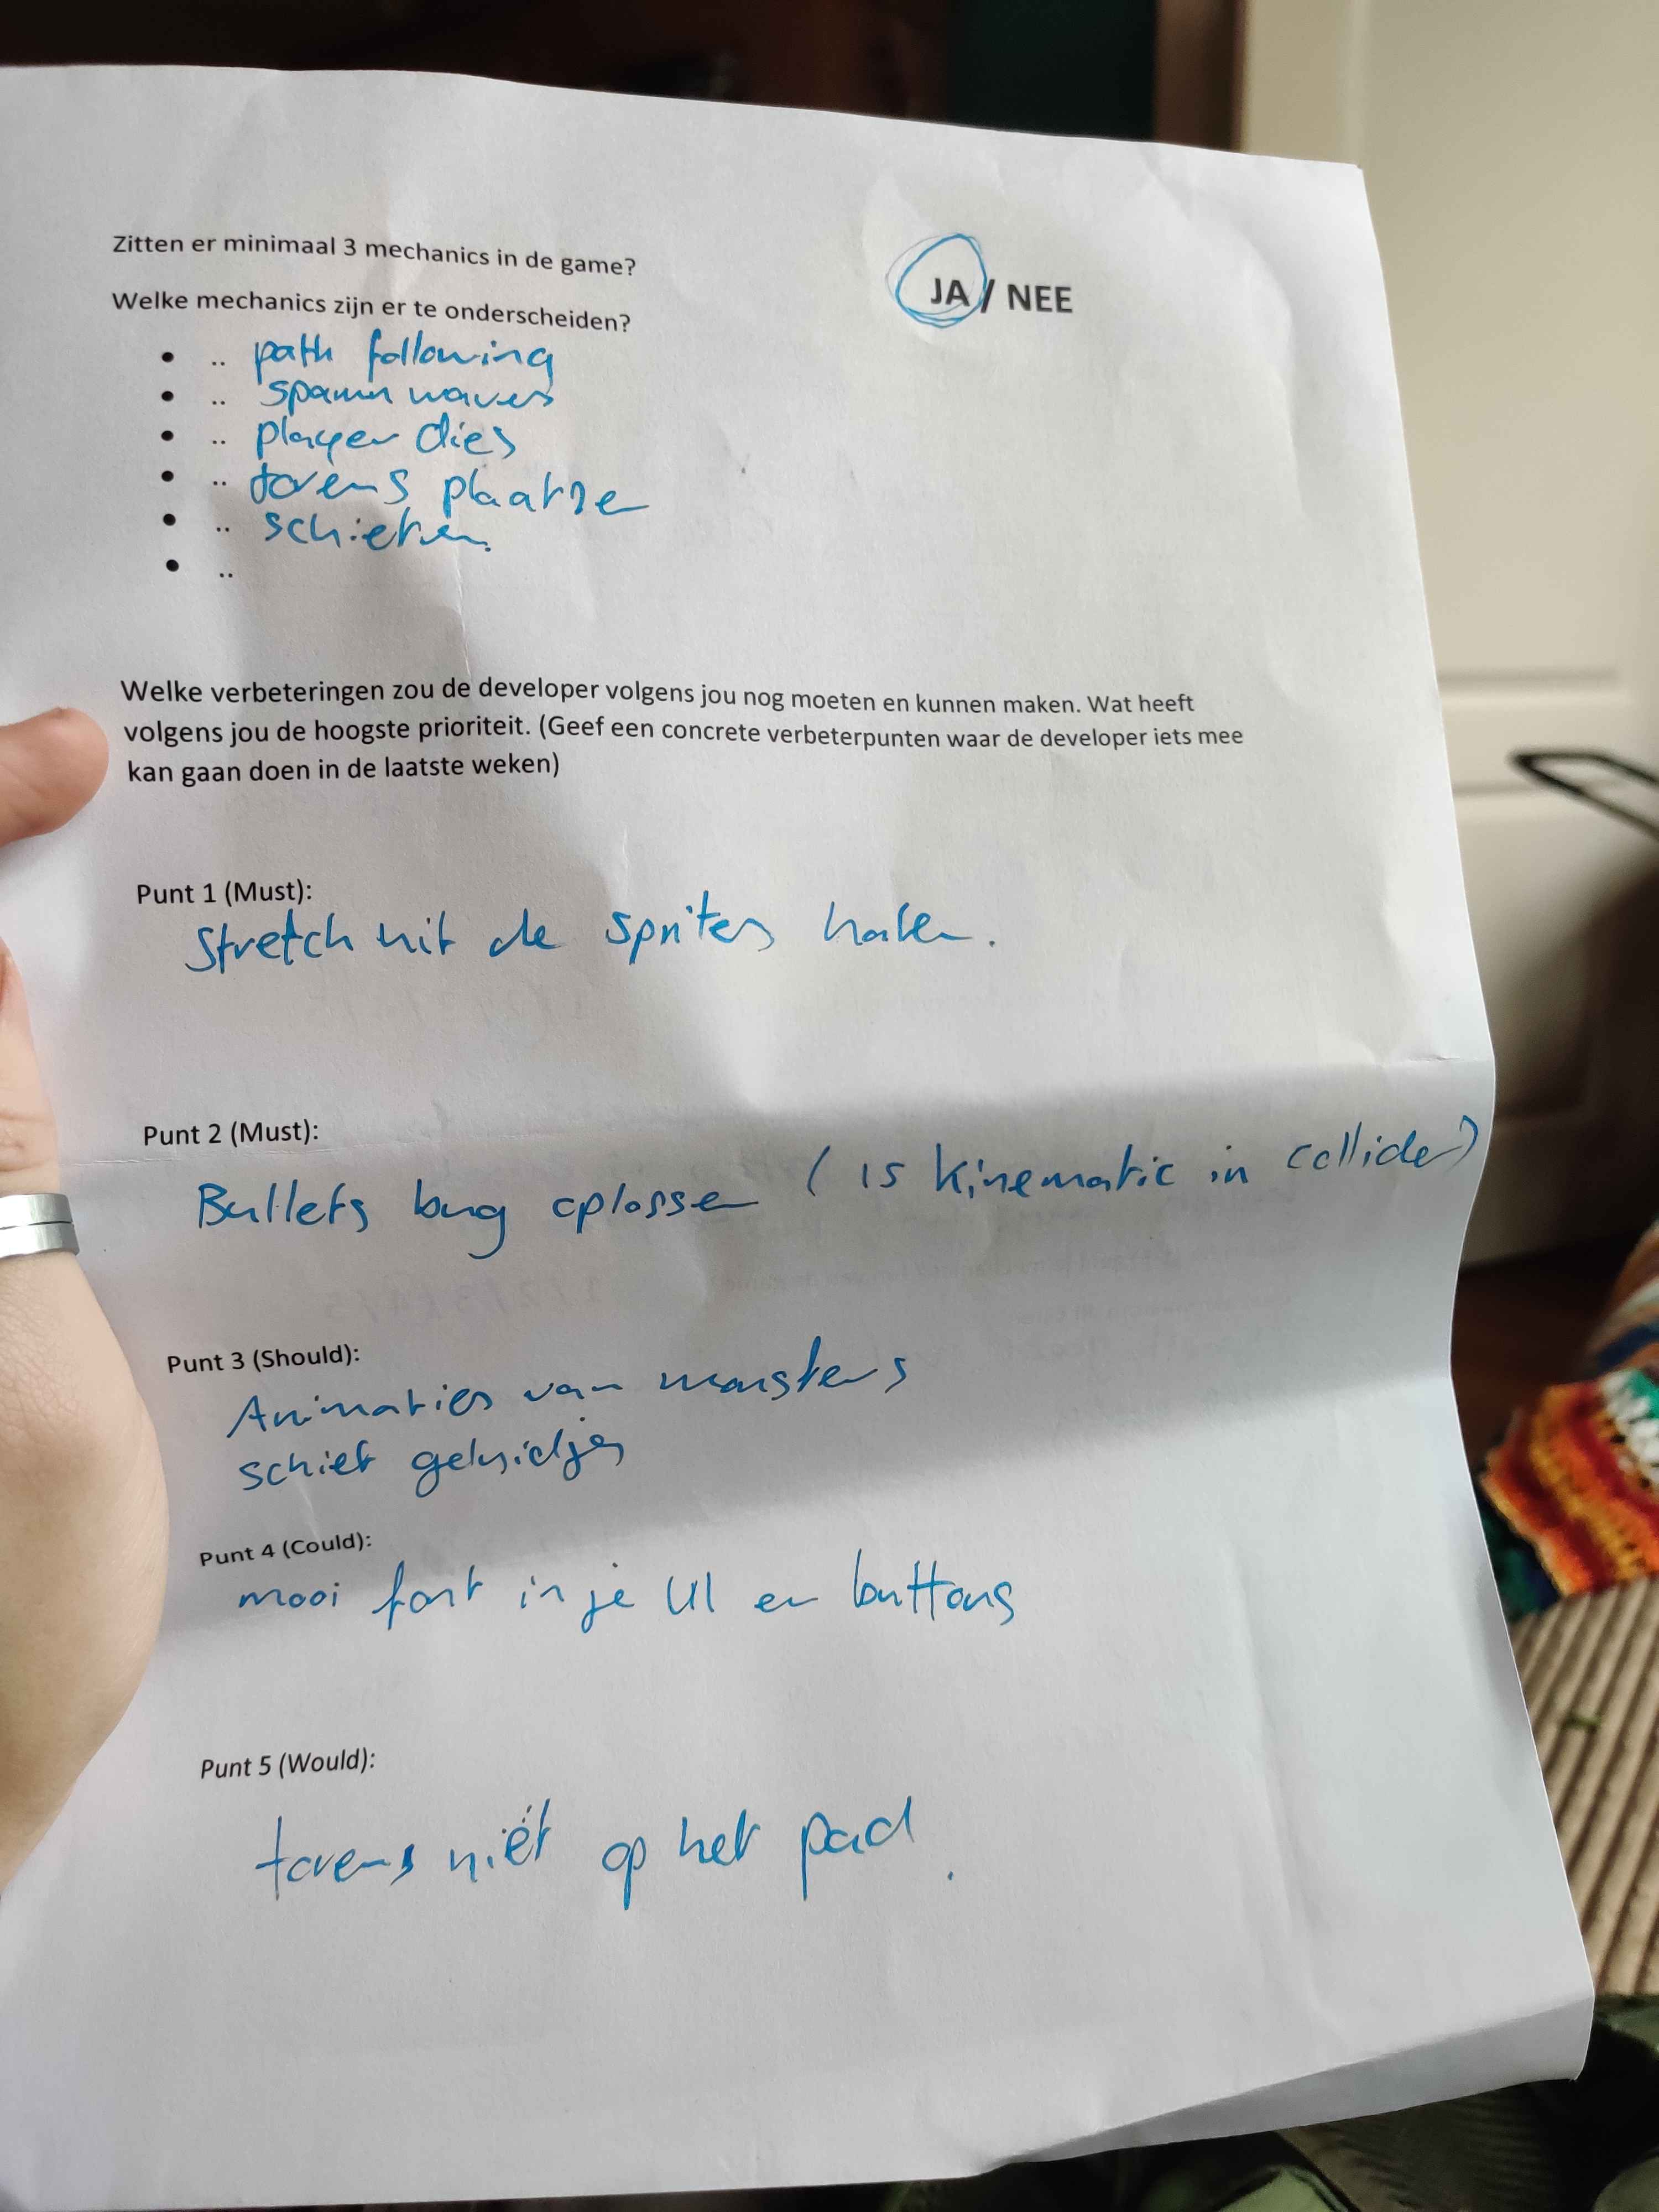 Zitten er minimaal 3 mechanics in de game?
JA / NEE
Welke mechanics zijn er te onderscheiden?
• .. path following
• .. spawn waves
• .. player dies
• .. torens plaatse
• .. schieten.
• ..
Welke verbeteringen zou de developer volgens jou nog moeten en kunnen maken. Wat heeft
volgens jou de hoogste prioriteit. (Geef een concrete verbeterpunten waar de developer iets mee
kan gaan doen in de laatste weken)
Punt 1 (Must):
Stretch uit de sprites halen.
Punt 2 (Must):
Bullets bug oplossen (is kinematic in collider)
Punt 3 (Should):
Animaties van monsters
schiet geluidjes
Punt 4 (Could):
mooi font in je UI en buttons
Punt 5 (Would):
torens niet op het pad.